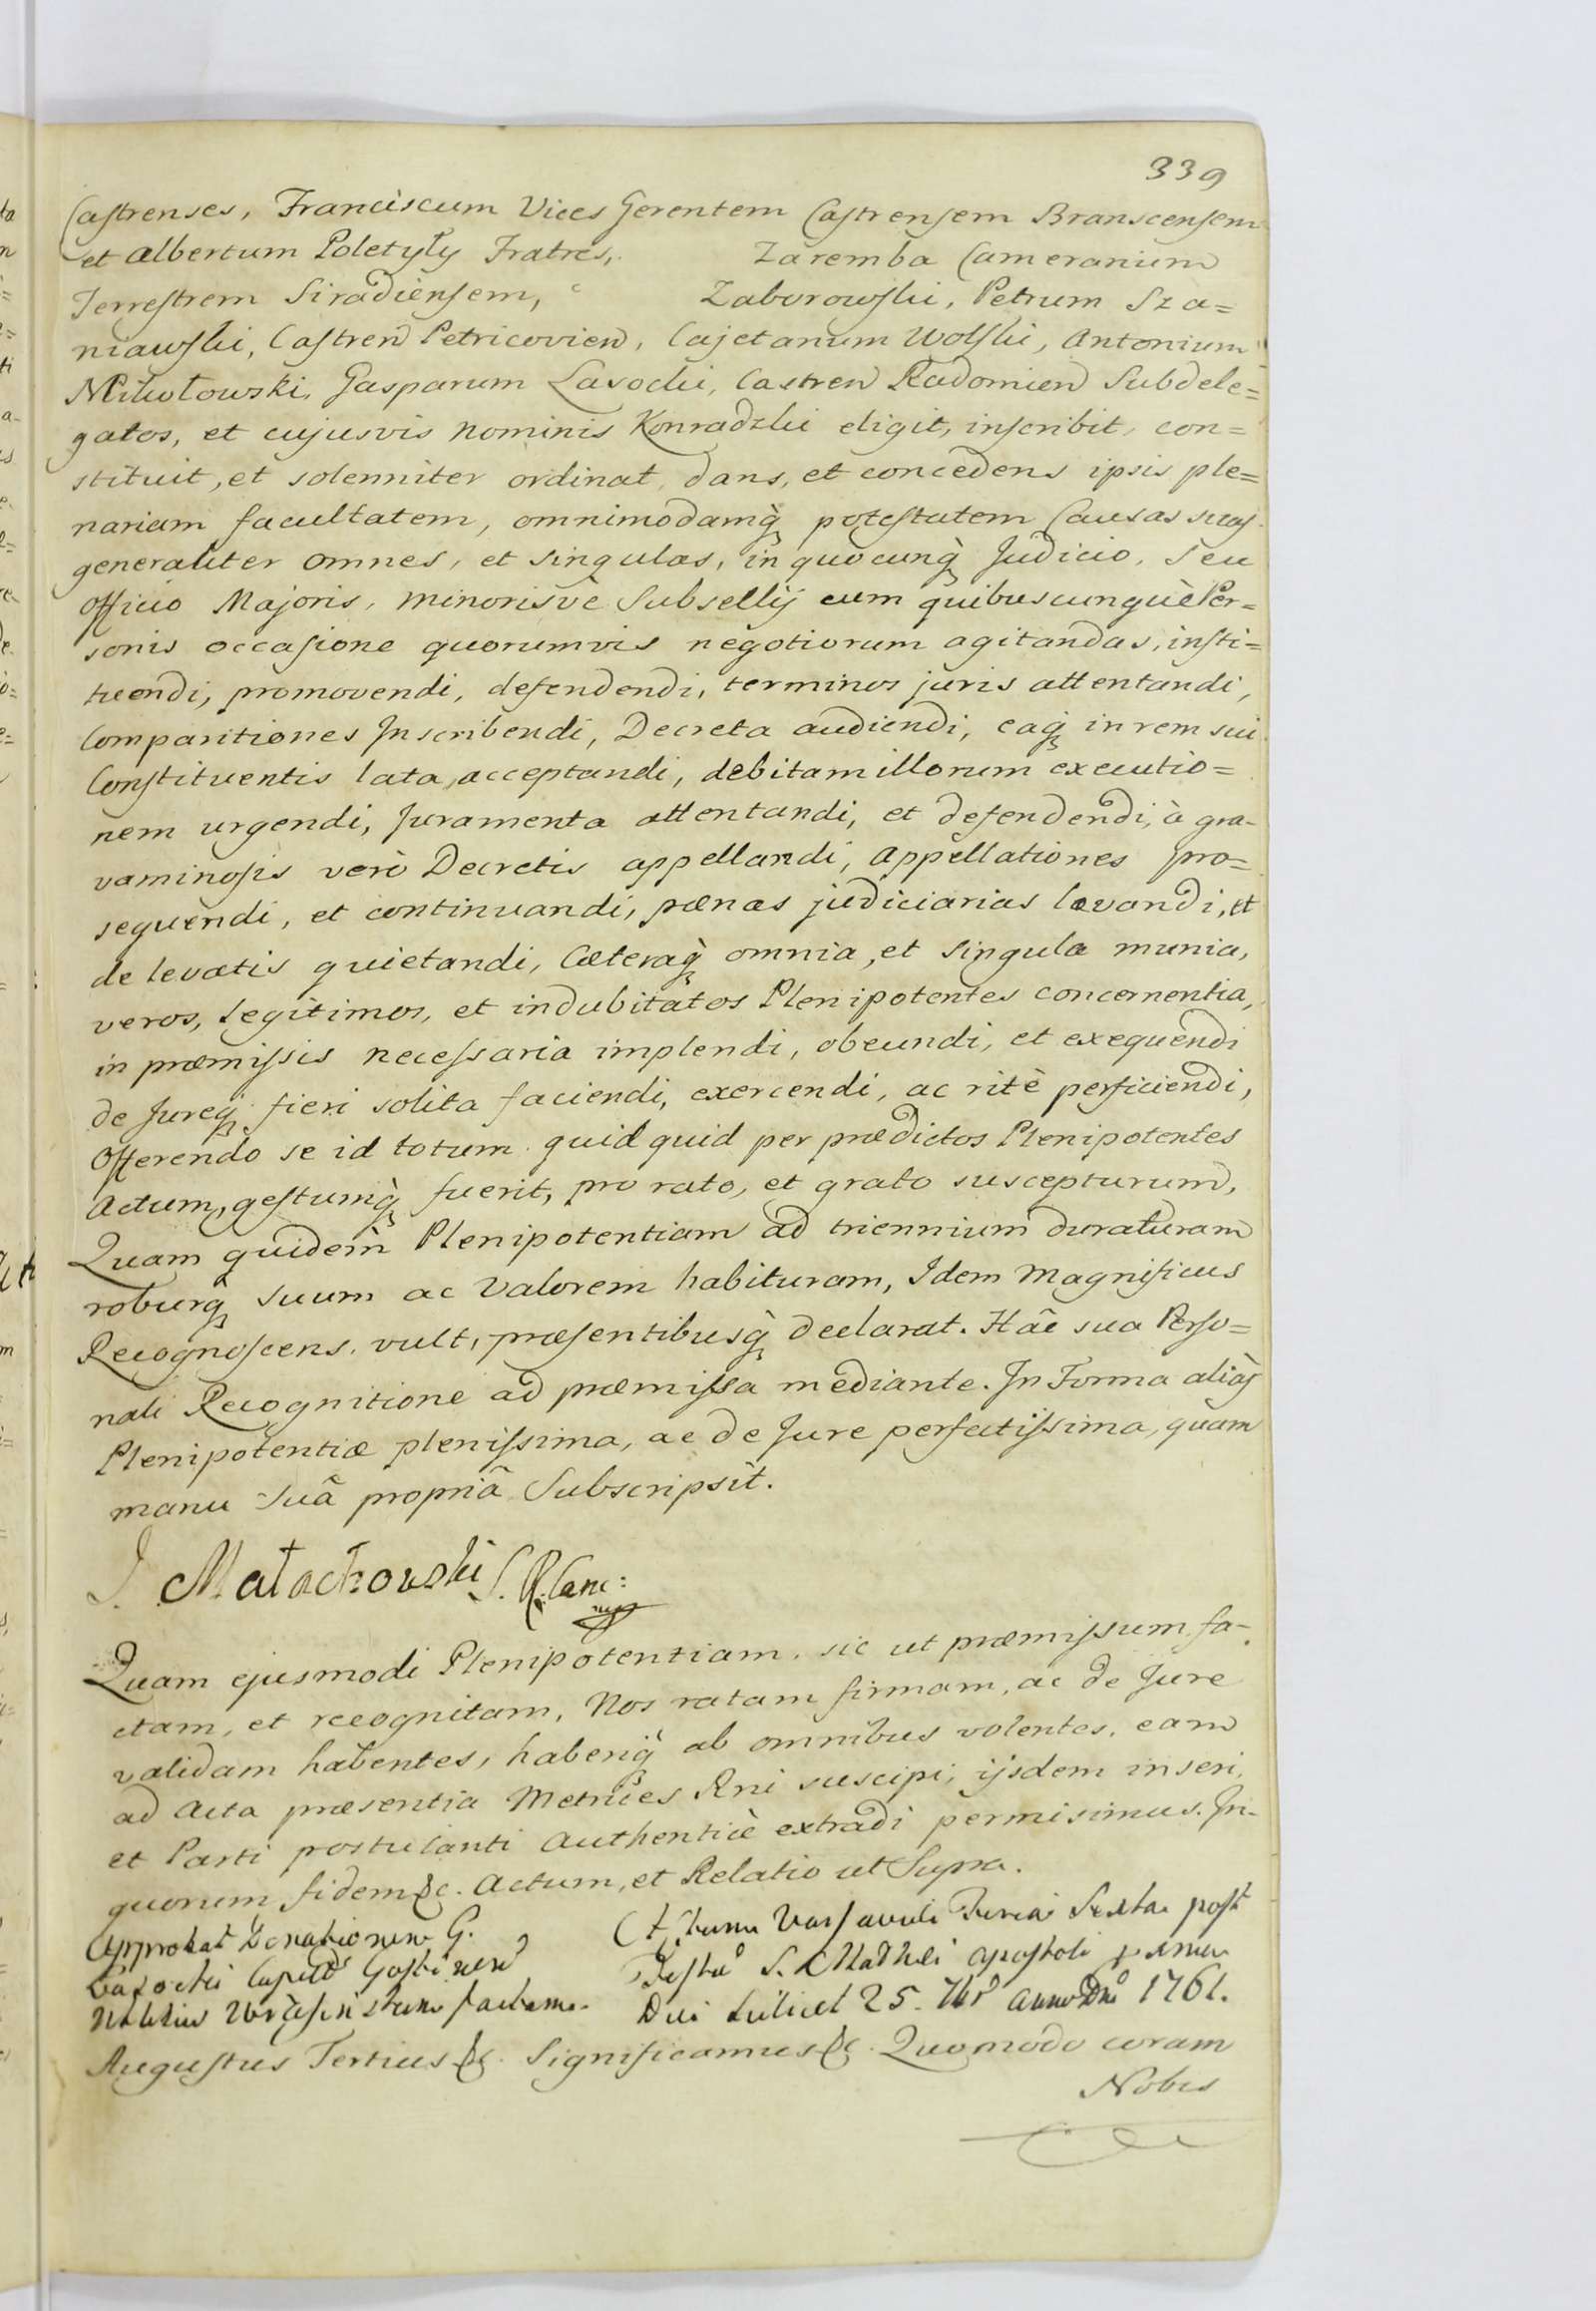 339
Castrenses, Franciscum Vices Gerentem Castrensem Branscensem
et Albertum Poletyły Fratres, Zaremba Cameranium
Terrestrem Siradiensem, Zaborowski, Petrum Sza=
niawski, Castren Petricovien, Cajetanum Wolski, Antonium
Mikołowski, Gasparum Lasocki, Castren Radomien Subdele=
gatos, et cujusvis nominis Konradzki eligit, inscribit, con=
stituit, et solenniter ordinat, dans, et concedens ipsis ple=
nariam facultatem, omnimodamq̀ potestatem Causas suas
generaliter omnes, et singulas, in quocunq̀ Judicio, seu
Officio Majoris, minorisvè Subsellij cum quibuscunquè Per=
sonis occasione quorumvis negotiorum agitandas, insti=
tuendi, promovendi, defendendi, terminos juris attentandi,
Comparitiones Inscribendi, Decreta audiendi, eaq̀ in rem sui
Constituentis lata, acceptandi, debitam illorum executio=
nem urgendi, Juramenta attentandi, et defendendi, à gra-
vaminosis verò Decretis appellandi, Appellationes pro=
sequendi, et continuandi, pænas judiciarias levandi, et
de levatis quietandi, Cæteraq̀ omnia, et singula munia,
veros, legitimos, et indubitatos Plenipotentes concernentia,
in præmissis necessaria implendi, obeundi, et exequendi
de Jureq̀ fieri solita faciendi, exercendi, ac ritè perficiendi,
Offerendo se id totum quidquid per prædictos Plenipotentes
Actum, gestumq̀ fuerit, pro rato, et grato suscepturum,
Quam quidem Plenipotentiam ad triennium duraturam
roburq̀ suum ac valorem habituram, Idem Magnificus
Recognoscens, vult, præsentibusq̀ declarat. Hâc sua Perso=
nali Recognitione ad præmissa mediante. In Forma aliàs
Plenipotentiæ plenissima, ac de Jure perfectissima, quam
manu suâ propriâ Subscripsit.
J Małachowski S. R. Canc:
mp
Quam ejusmodi Plenipotentiam, sic ut præmissum fa-
ctam, et recognitam, Nos ratam firmam, ac de Jure
validam habentes, haberiq̀ ab omnibus volentes, eam
ad Acta præsentia Metrices Rni suscipi, ijsdem inseri,
et Parti postulanti authenticè extradi permisimus. In-
quorum fidem &c. Actum, et Relatio ut Supra.
Approbat Donationem G.
Lasocki Capit Gostinen
factam.
Actum Varsaviæ Feria Sexta post
Festu S. Mathei Apostoli
Die scilicet 25. 7br Anno Dni 1761.
Augustus Tertius &c. Significamus &c. Quomodo coram
Nobis